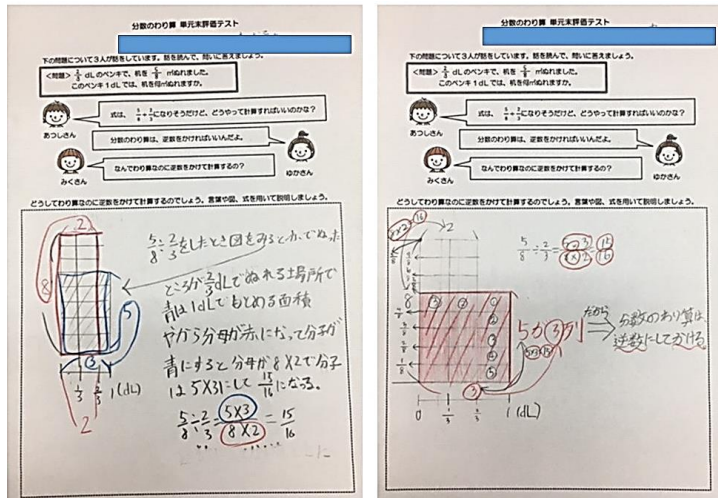 分数のわり算 単元末評価テスト
下の問題について3人が話をしています。話を読んで、問いに答えましょう。
<問題> 2/3 dLのペンキで、机を 5/8 ㎡ぬれました。
このペンキ1dLでは、机を何㎡ぬれますか。
式は、5/8÷2/3になりそうだけど、どうやって計算すればいいのかな?
あつしさん
分数のわり算は、逆数をかければいいんだよ。
ゆかさん
なんでわり算なのに逆数をかけて計算するの?
みくさん
どうしてわり算なのに逆数をかけて計算するのでしょう。言葉や図、式を用いて説明しましょう。
2
8
5
3
1/3 2/3 1(dL)
2
5/8÷2/3をしたとき図をみると
ところが2/3dLでぬれる場所で
青は1dLでもとめる面積
やから分母が赤になって分子が
青にすると分母が8×2で分子
は5×3にして15/16になる。
5/8÷2/3=5×3/8×2=15/16
分数のわり算 単元末評価テスト
下の問題について3人が話をしています。話を読んで、問いに答えましょう。
<問題> 2/3 dLのペンキで、机を 5/8 ㎡ぬれました。
このペンキ1dLでは、机を何㎡ぬれますか。
式は、5/8÷2/3になりそうだけど、どうやって計算すればいいのかな?
あつしさん
分数のわり算は、逆数をかければいいんだよ。
ゆかさん
なんでわり算なのに逆数をかけて計算するの?
みくさん
どうしてわり算なのに逆数をかけて計算するのでしょう。言葉や図、式を用いて説明しましょう。
8×2=16
5/8÷2/3=5×3/8×2=15/16
8
3 2 1
2
3
4
5
5が3列
だから
分数のわり算は
逆数にしてかける。
5×3=15
3
0 1/3 2/3 1(dL)